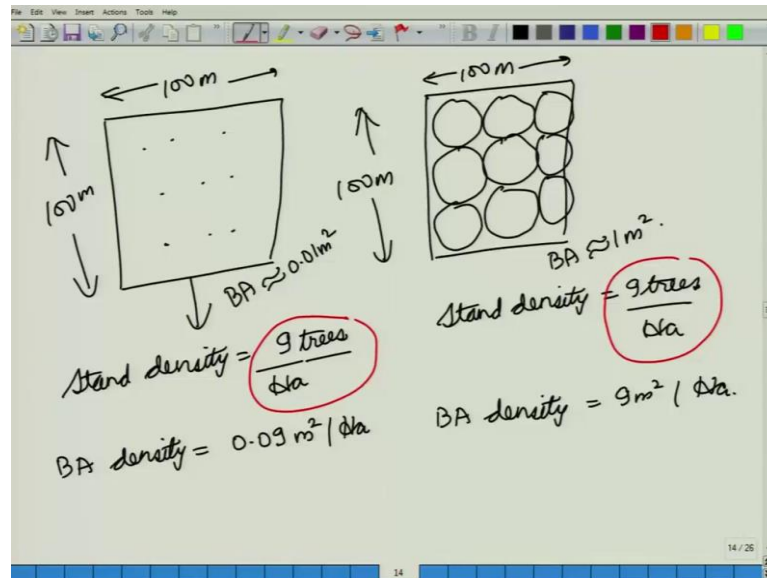 File Edit View Insert Actions Tools Help
B I
100m
100m
BA ≈ 0.01m²
Stand density = 9 trees / Ha
BA density = 0.09 m² / Ha
100m
100m
BA ≈ 1m².
Stand density = 9 trees / Ha
BA density = 9m² / Ha.
14 / 26
14